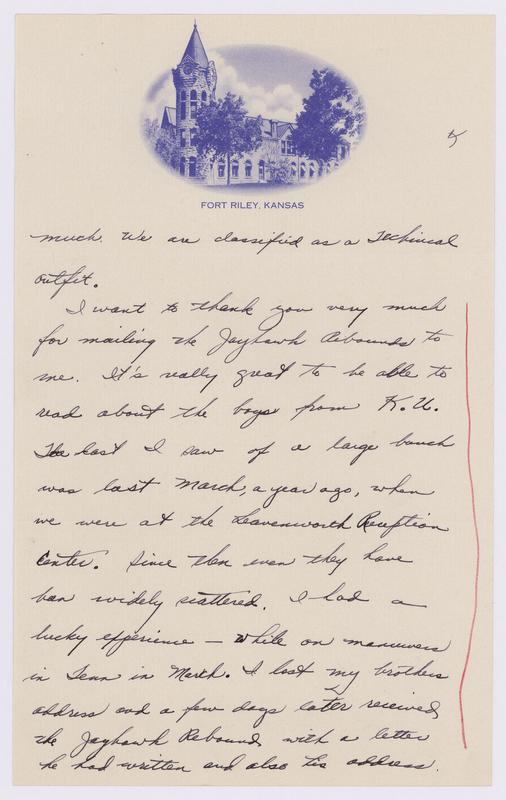 FORT RILEY, KANSAS
much. We are classified as a Technical
outfit.
I want to thank you very much
for mailing the Jayhawk Rebounds to
me. It's really great to be able to
read about the boys from K.U.
The last I saw of a large bunch
was last March, a year ago, when
we were at the Leavenworth Reception
Center. Since then even they have
ban widely scattered. I had a
lucky experience — while on maneuvers
in Tenn in March. I lost my brothers
address and a few days later received
the Jayhawk Rebounds with a letter
he had written and also his address.